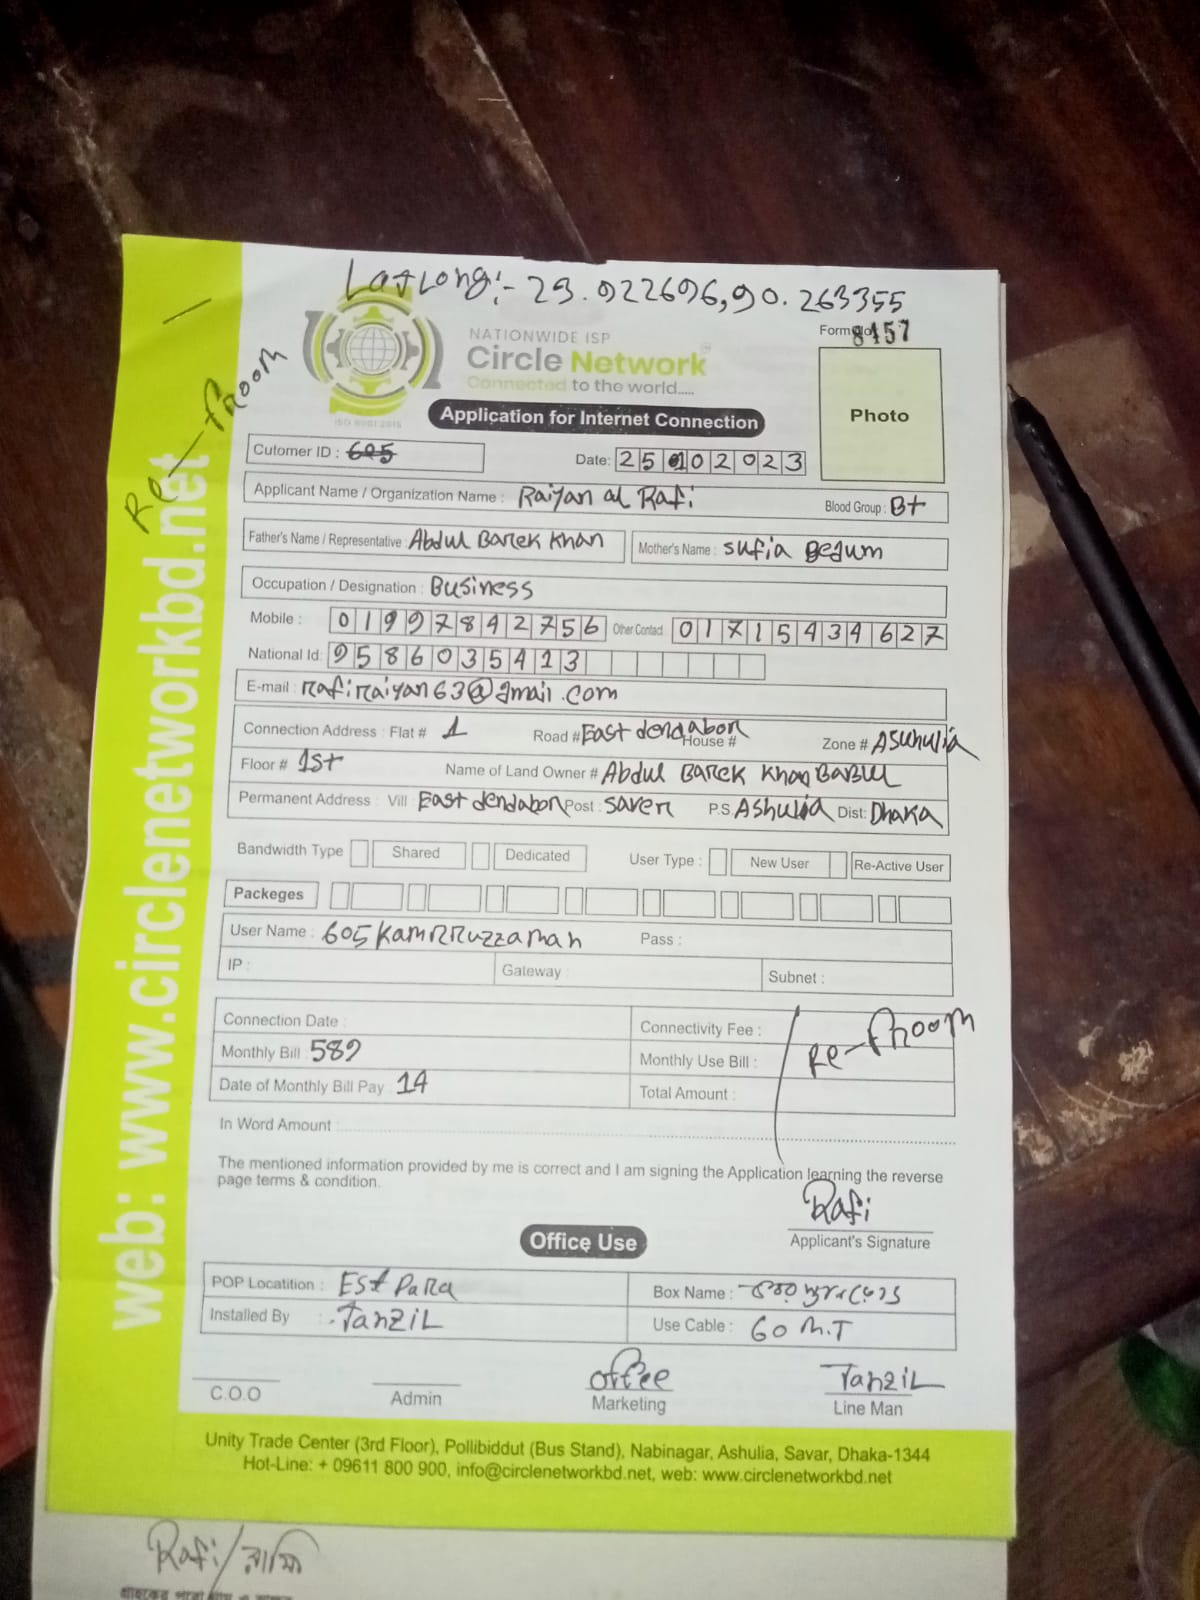 LatLong:- 23.922696,90.263355
NATIONWIDE ISP
Circle Network
Connected to the world.....
ISO 9001:2015
Form No. 8457
Photo
Application for Internet Connection
Re-froom
Cutomer ID : 605
Date: 25 10 2023
Applicant Name / Organization Name : Raiyan al Rafi
Blood Group : B+
Father's Name / Representative : Abdul Barek Khan
Mother's Name : Sufia Begum
Occupation / Designation : Business
Mobile : 01997842756 Other Contact 01715434627
National Id: 9586035413
E-mail : rafiraiyan63@gmail.com
Connection Address : Flat # 1 Road # East dendabon House # Zone # Asuhulia
Floor # 1st Name of Land Owner # Abdul Barek Khan Babul
Permanent Address : Vill East dendabon Post : Saver P.S. Ashulia Dist: Dhaka
Bandwidth Type Shared Dedicated User Type : New User Re-Active User
Packeges
User Name : 605Kamrruzzaman Pass :
IP : Gateway : Subnet :
Connection Date : Connectivity Fee :
Monthly Bill 589 Monthly Use Bill :
Re-froom
Date of Monthly Bill Pay : 14 Total Amount :
In Word Amount :
The mentioned information provided by me is correct and I am signing the Application learning the reverse
page terms & condition.
Rafi
Applicant's Signature
Office Use
POP Locatition : Est Para Box Name :
Installed By : Tanzil Use Cable : 60 M.T
office Tanzil
C.O.O Admin Marketing Line Man
Unity Trade Center (3rd Floor), Pollibiddut (Bus Stand), Nabinagar, Ashulia, Savar, Dhaka-1344
Hot-Line: + 09611 800 900, info@circlenetworkbd.net, web: www.circlenetworkbd.net
web: www.circlenetworkbd.net
Rafi/রাফি